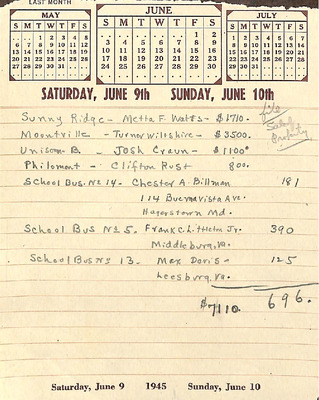 LAST MONTH
MAY JUNE JULY
S M T W T F S
1 2 3 4 5
6 7 8 9 10 11 12
13 14 15 16 17 18 19
20 21 22 23 24 25 26
27 28 29 30 31
S M T W T F S
1 2
3 4 5 6 7 8 9
10 11 12 13 14 15 16
17 18 19 20 21 22 23
24 25 26 27 28 29 30
S M T W T F S
1 2 3 4 5 6 7
8 9 10 11 12 13 14
15 16 17 18 19 20 21
22 23 24 25 26 27 28
29 30 31
SATURDAY, JUNE 9th SUNDAY, JUNE 10th
file
Sale of
Property
Sunny Ridge - Metta F. Watts - $1710.
Mountville - Turner Wiltshire - $3500.
Unison B - Josh Craun - $1100
Philomont - Clifton Rust 800.
School Bus No 14 - Chester A. Billman 181
114 Buenavista Ave.
Hagerstown Md.
School Bus No 5. Frank C. Littleton Jr. 390
Middleburg, Va.
School Bus No 13. Max Davis - 125
Leesburg, Va.
$7110. 696.
Saturday, June 9 1945 Sunday, June 10